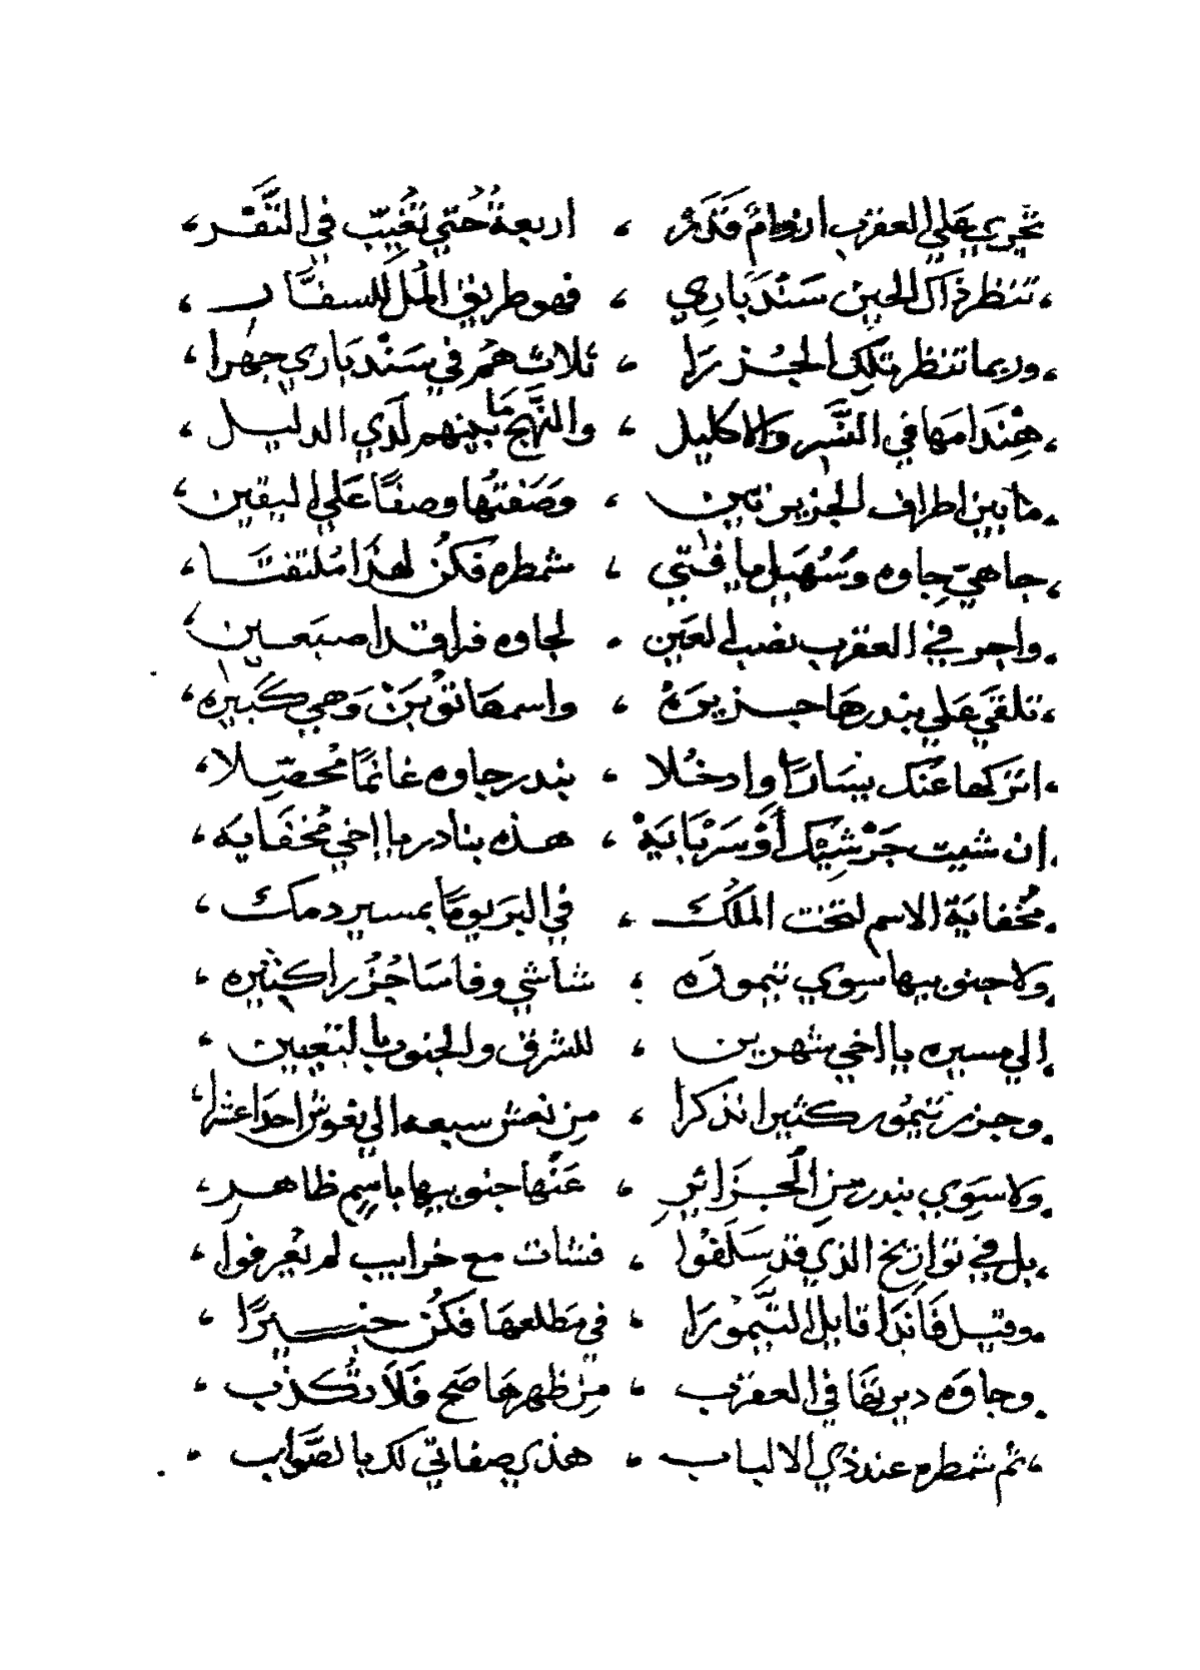 تجري علي العقرب ازوام قدر ، اربعة حتي تغيب في النقر ،
، تنظر ذاك الحين سندباري ، فهو طريق المل للسفار ،
، وربما تنظر تلك الجزرا ، ثلاث هم في سندباري جهرا ،
، هندامها في النسر والاكليل ، والنهج ما بينهم لدي الدليل ،
، ما بين اطراف الجزيرتين ، وصفتها وصفا علي اليقين ،
، جاهي جاوه وسهيل يا فتي ، شمطره فكن لهذا ملتفتا ،
، واجر في العقرب نصب العين ، لجاوه فراقد اصبعين ،
، تلقي علي بندرها جزيره ، واسمها توبن وهي كبيره ،
، اتركها عنك يسارا وادخلا ، بندر جاوه غانما محصلا ،
، إن شيت جرشيك أو سربايه ، هذه بنادر يا إخي مخفايه ،
، مخفاية الاسم لتخت الملك ، في البر يوما بمسير دمك ،
، ولا جنوبيها سوي تيموره ، شاشي وفاسا جزرا كثيره ،
إلي مسيره يا اخي شهرين ، للشرق والجنوب بالتعيين ،
، وجزر تيمور كثيرا تذكرا ، من نعش سبعه الي نعوش احدا عشرا ،
، ولا سوي بندر من الجزائر ، عنها جنوبيها باسم ظاهر ،
، بل في تواريخ الذي قد سلفوا ، فتئات مع خرايب لم تعرفوا ،
، وقيل فاندا قابل التيمورا ، في مطلعها فكن خبيرا ،
، وجاوه ديرتها في العقرب ، من ظهرها صح فلا تكذب ،
، ثم شمطره عند ذي الالباب ، هذي صفاتي لك بالصواب ،